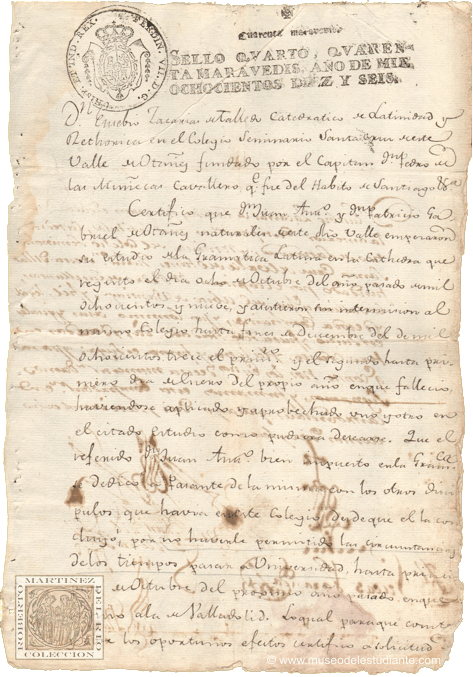 HISP. ET IND. REX. FERDIN. VII. D. G.
Quarenta maravedis.
SELLO QVARTO, QVAREN-
TA MARAVEDIS, AÑO DE MIL
OCHOCIENTOS DIEZ Y SEIS.
Dn. Eusebio Zacarias de Talledo Catedratico de Latinidad y
Rethorica en el Colegio Seminario Santa Cruz de este
Valle de Otañes fundado por el Capitan Dn. Pedro de
las Muñecas Cavallero qe. fue del Habito de Santiago &a
Certifico que Dn. Juan Anto. y Dn. Fabricio Ga
briel de Otañes naturales de este dho Valle empezaron
su estudio de la Gramatica Latina en la Cathedra que
regento el dia ocho de Octubre del año pasado de mil
ochocientos y nueve, y asistieron sin intermision al
mismo Colegio hasta fines de Diciembre del de mil
ochocientos trece el primo. y el segundo hasta pri
mero de Enero del propio año en que fallecio,
haviendose aplicado y aprobechado uno y otro en
el citado estudio como pudiera desearse. Que el
referido Dn. Juan Anto. bien impuesto en la Gramca.
se dedico a Pasante de la misma con los otros disci
pulos que havia en este Colegio desde que el la con
cluyó, por no haverle permitido las circunstancias
de los tiempos pasar a Universidad, hasta
de Octubre del proximo año pasado en que
a la de Valladolid. Lo qual para que
los oportunos efectos certifico a solicitud
ROBERTO MARTINEZ DEL RIO
COLECCION
© www.museodelestudiante.com